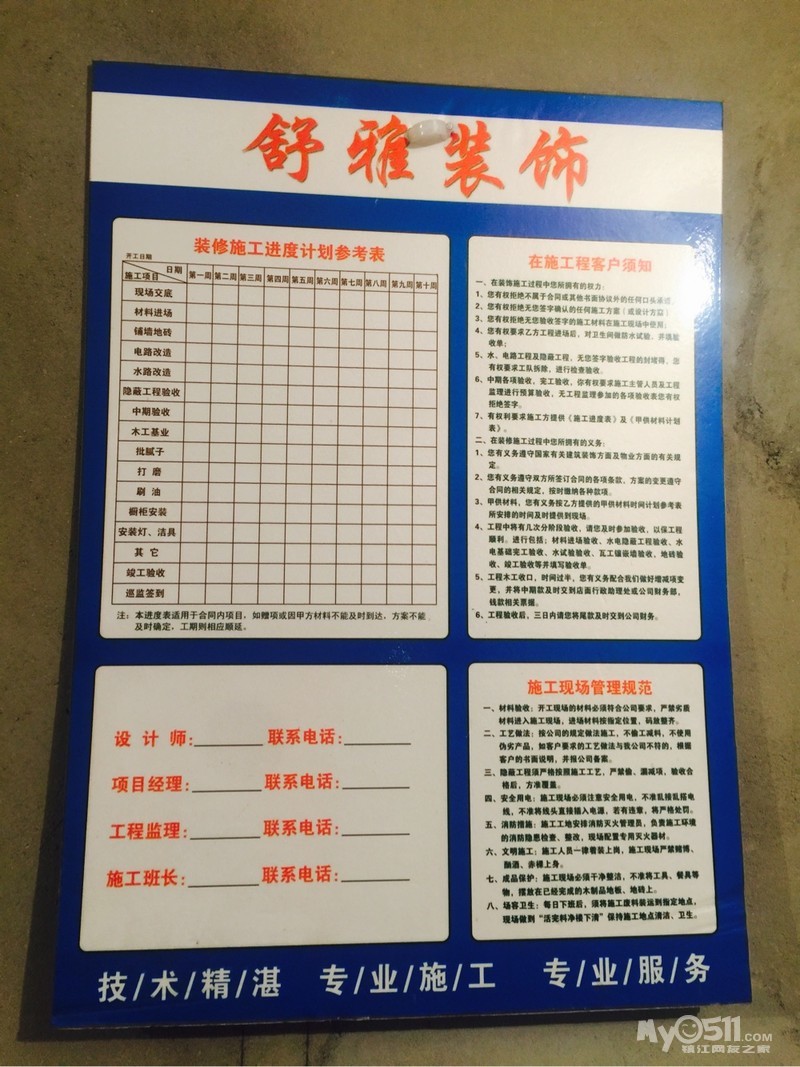 舒雅装饰
装修施工进度计划参考表
开工日期
日期
施工项目
第一周 第二周 第三周 第四周 第五周 第六周 第七周 第八周 第九周 第十周
现场交底
材料进场
铺墙地砖
电路改造
水路改造
隐蔽工程验收
中期验收
木工基业
批腻子
打磨
刷油
橱柜安装
安装灯、洁具
其它
竣工验收
巡监签到
注：本进度表适用于合同内项目，如赠项或因甲方材料不能及时到达，方案不能
及时确定，工期则相应顺延。
在施工程客户须知
一、在装饰施工过程中您所拥有的权力：
1、您有权拒绝不属于合同或其他书面协议外的任何口头承诺
2、您有权拒绝无您签字确认的任何施工方案（或设计方案）
3、您有权拒绝无您验收签字的施工材料在施工现场中使用；
4、您有权要求乙方工程进场后，对卫生间做防水试验，并填验
收单；
5、水、电路工程及隐蔽工程，无您签字验收工程的封堵得，您
有权要求工队拆除，进行检查验收。
6、中期各项验收，完工验收，你有权要求施工主管人员及工程
监理进行预算验收，无工程监理参加的各项验收表您有权
拒绝签字。
7、有权利要求施工方提供《施工进度表》及《甲供材料计划
表》。
二、在装修施工过程中您所拥有的义务：
1、您有义务遵守国家有关建筑装饰方面及物业方面的有关规
定。
2、您有义务遵守双方所签订合同的各项条款，方案的变更遵守
合同的相关规定，按时缴纳各种款项。
3、甲供材料，您有义务按乙方提供的甲供材料时间计划参考表
所安排的时间及时提供到现场。
4、工程中将有几次分阶段验收，请您及时参加验收，以保工程
顺利。进行包括：材料进场验收、水电隐蔽工程验收、水
电基础完工验收、水试验验收、瓦工镶嵌墙验收，地砖验
收、竣工验收等并填写验收单。
5、工程木工收口，时间过半，您有义务配合我们做好增减项变
更，并将中期款及时交到店面行政助理处或公司财务部，
钱款相关票据。
6、工程验收后，三日内请您将尾款及时交到公司财务。
设计师： 联系电话：
项目经理： 联系电话：
工程监理： 联系电话：
施工班长： 联系电话：
施工现场管理规范
一、材料验收：开工现场的材料必须符合公司要求，严禁劣质
材料进入施工现场，进场材料按指定位置，码放整齐。
二、工艺做法：按公司的规定做法施工，不偷工减料，不使用
伪劣产品，如客户要求的工艺做法与我公司不符的，根据
客户的书面说明，并报公司备案。
三、隐蔽工程须严格按照施工工艺，严禁偷、漏减项，验收合
格后，方准覆盖。
四、安全用电：施工现场必须注意安全用电，不准乱接乱搭电
线，不准将线头直接插入电源，若有违章，将严格处罚。
五、消防措施：施工工地安排消防灭火管理员，负责施工环境
的消防隐患检查、整改，现场配置专用灭火器材。
六、文明施工：施工人员一律着装上岗，施工现场严禁赌博、
酗酒、赤裸上身。
七、成品保护：施工现场必须干净整洁，不准将工具、餐具等
物，摆放在已经完成的木制品地板、地砖上。
八、场容卫生：每日下班后，须将施工废料装运到指定地点，
现场做到“活完料净楼下清”保持施工地点清洁、卫生。
技/术/精/湛 专/业/施/工 专/业/服/务
My0511.COM
镇江网友之家